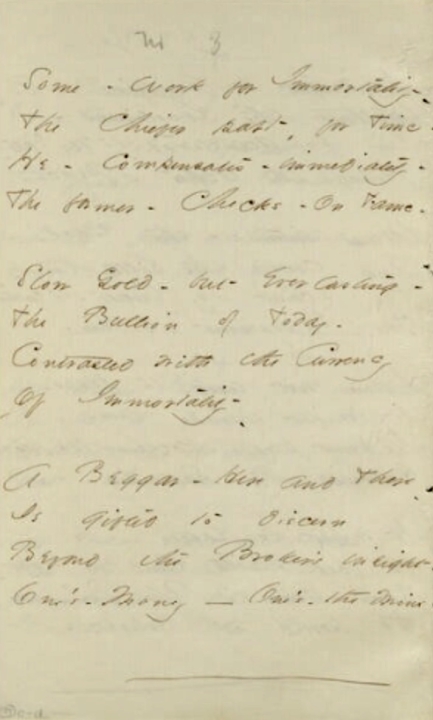 Some - Work for Immortality -
The Chiefer part, for Time -
He - Compensates - immediately -
The former - Checks - On Fame -
Slow Gold - but Everlasting -
The Bullion of Today -
Contrasted with the Currency
Of Immortality -
A Beggar - Here and There
Is gifted to discern
Beyond the Broker's insight -
One's - Money — One's - the Mine -